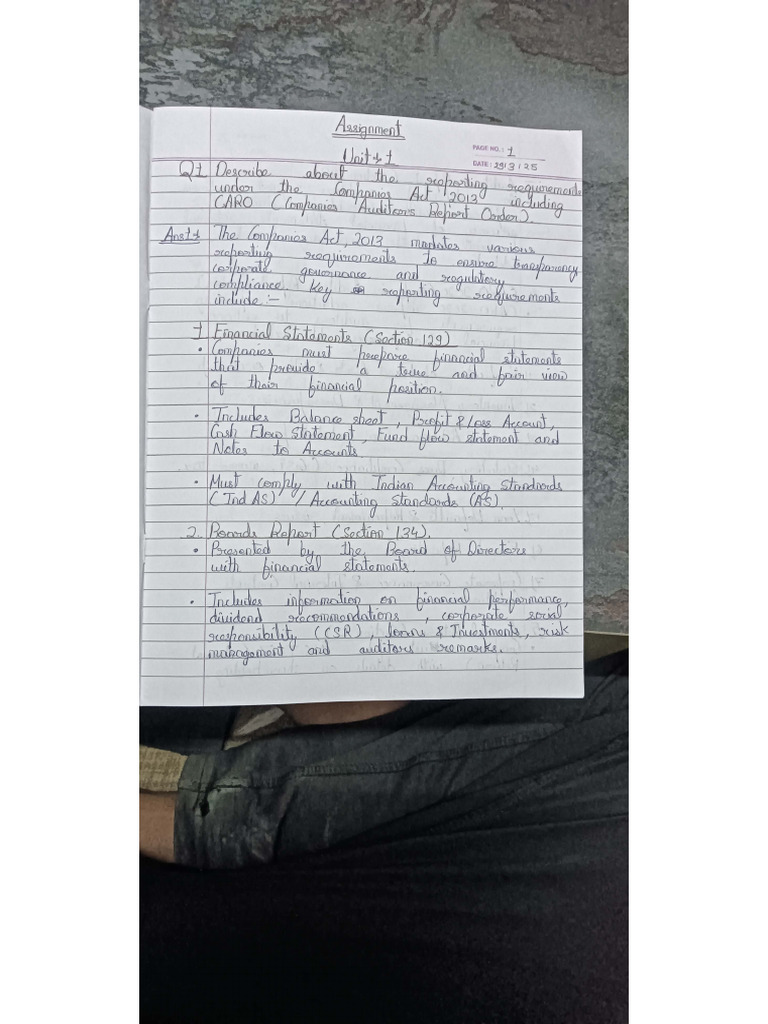 Assignment
PAGE NO.: 1
Unit 1
DATE: 29/3/25
Q1 Describe about the reporting requirements
under the Companies Act 2013 including
CARO (Companies Auditor's Report Order)
Ans1 The Companies Act, 2013 mandates various
reporting requirements to ensure transparency
corporate governance and regulatory
compliance. Key reporting requirements
include :-
1 Financial Statements (Section 129)
• Companies must prepare financial statements
that provide a true and fair view
of their financial position.
• Includes Balance sheet, Profit & Loss Account,
Cash Flow Statement, Fund flow statement and
Notes to Accounts
• Must comply with Indian Accounting Standards
(Ind AS) / Accounting Standards (AS).
2. Boards Report (Section 134).
• Presented by the Board of Directors
with financial statements.
• Includes information on financial performance,
dividend recommendations, corporate social
responsibility (CSR), loans & Investments, risk
management and auditors remarks.